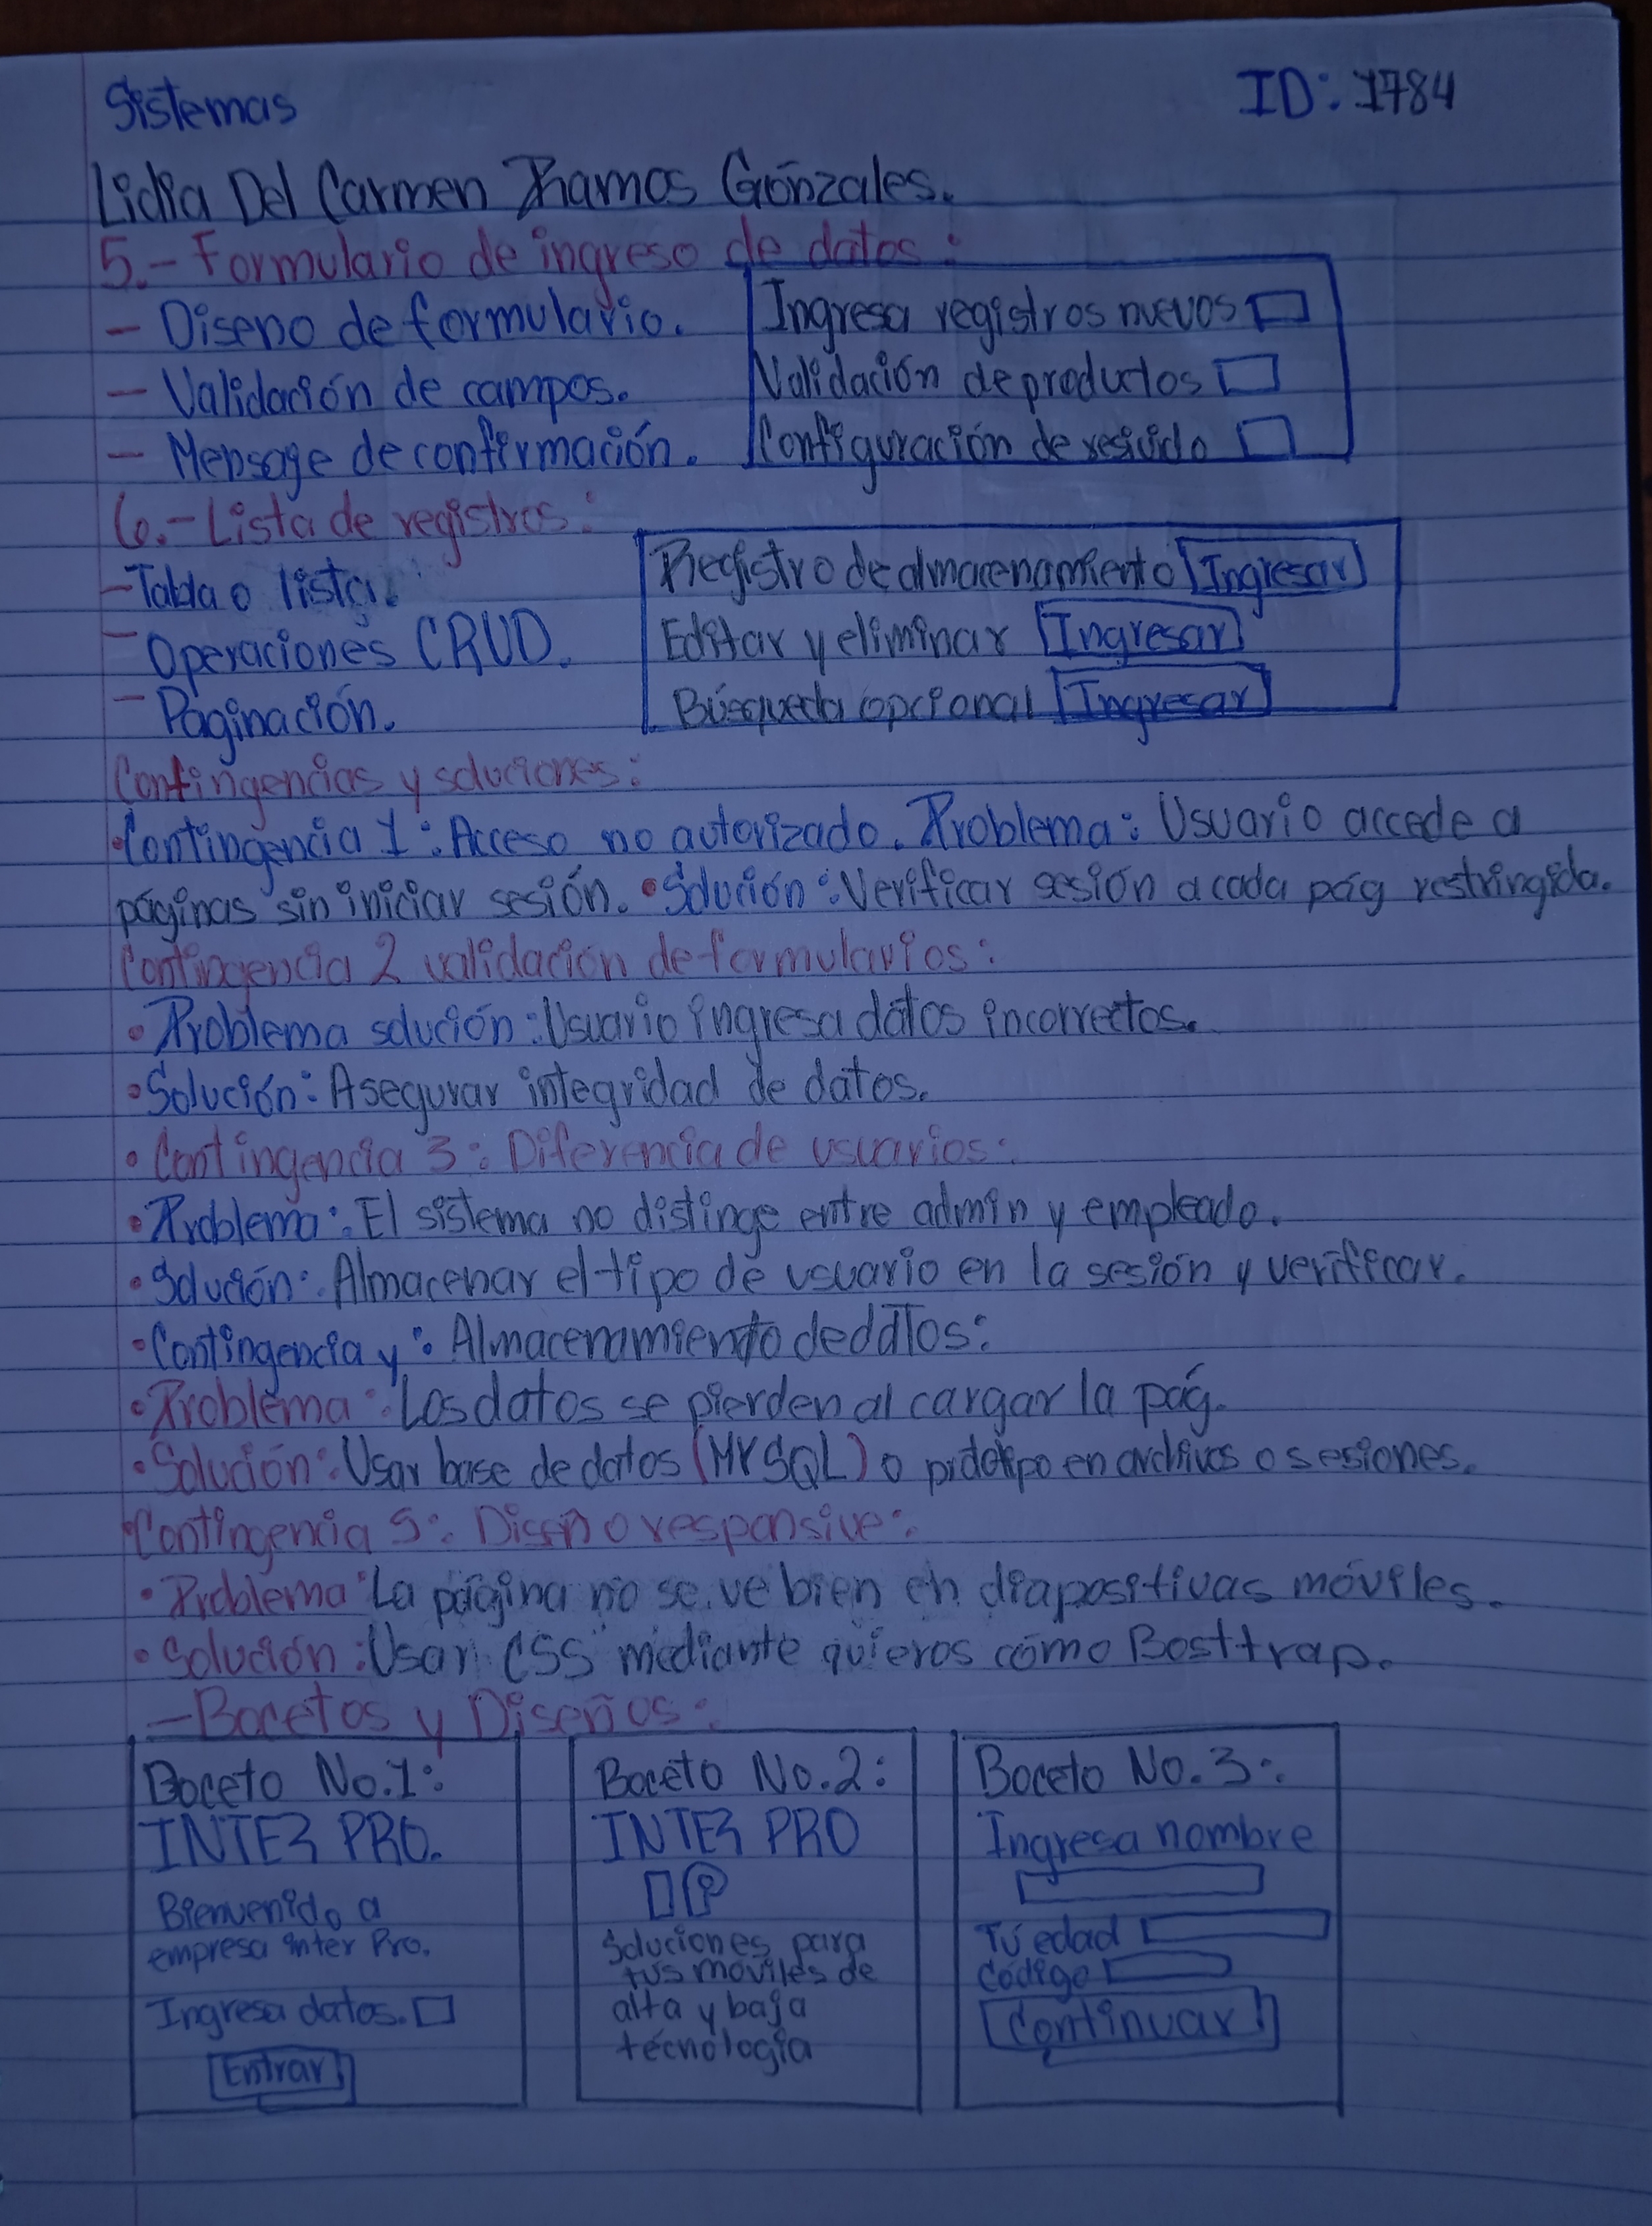 Sistemas
ID: 1784
Lidia Del Carmen Ramos Gónzales.
5.- Formulario de ingreso de datos:
- Diseno de formulario.
- Validación de campos.
- Mensage de confirmación.
Ingresa registros nuevos
Validación de productos
Configuración de resivido
6.- Lista de registros:
- Tabla o lista.
- Operaciones CRUD.
- Paginación.
Registro de almacenamiento Ingresar
Editar y eliminar Ingresar
Búsqueda opcional Ingresar
Contingencias y soluciones:
• Contingencia 1: Acceso no autorizado. Problema: Usuario accede a
páginas sin iniciar sesión. • Solución: Verificar sesión a cada pág restringida.
Contingencia 2 validación de formularios:
• Problema solución: Usuario ingresa datos incorrectos.
• Solución: Asegurar integridad de datos.
• Contingencia 3: Diferencia de usuarios:
• Problema: El sistema no distinge entre admin y empleado.
• Solución: Almacenar el tipo de usuario en la sesión y verificar.
• Contingencia y: Almacenamiento de datos:
• Problema: Los datos se pierden al cargar la pág.
• Solución: Usar base de datos (MYSQL) o prototipo en archivos o sesiones.
• Contingencia 5: Diseño responsive:
• Problema: La página no se ve bien en diapositivas móviles.
• Solución: Usar CSS mediante quieros cómo Bosttrap.
- Bocetos y Diseños:
Boceto No.1:
INTER PRO.
Bienvenido a
empresa inter Pro.
Ingresa datos.
Entrar
Boceto No.2:
INTER PRO
Soluciones para
tus móviles de
alta y baja
técnología
Boceto No.3:
Ingresa nombre
Tú edad
Código
Continuar